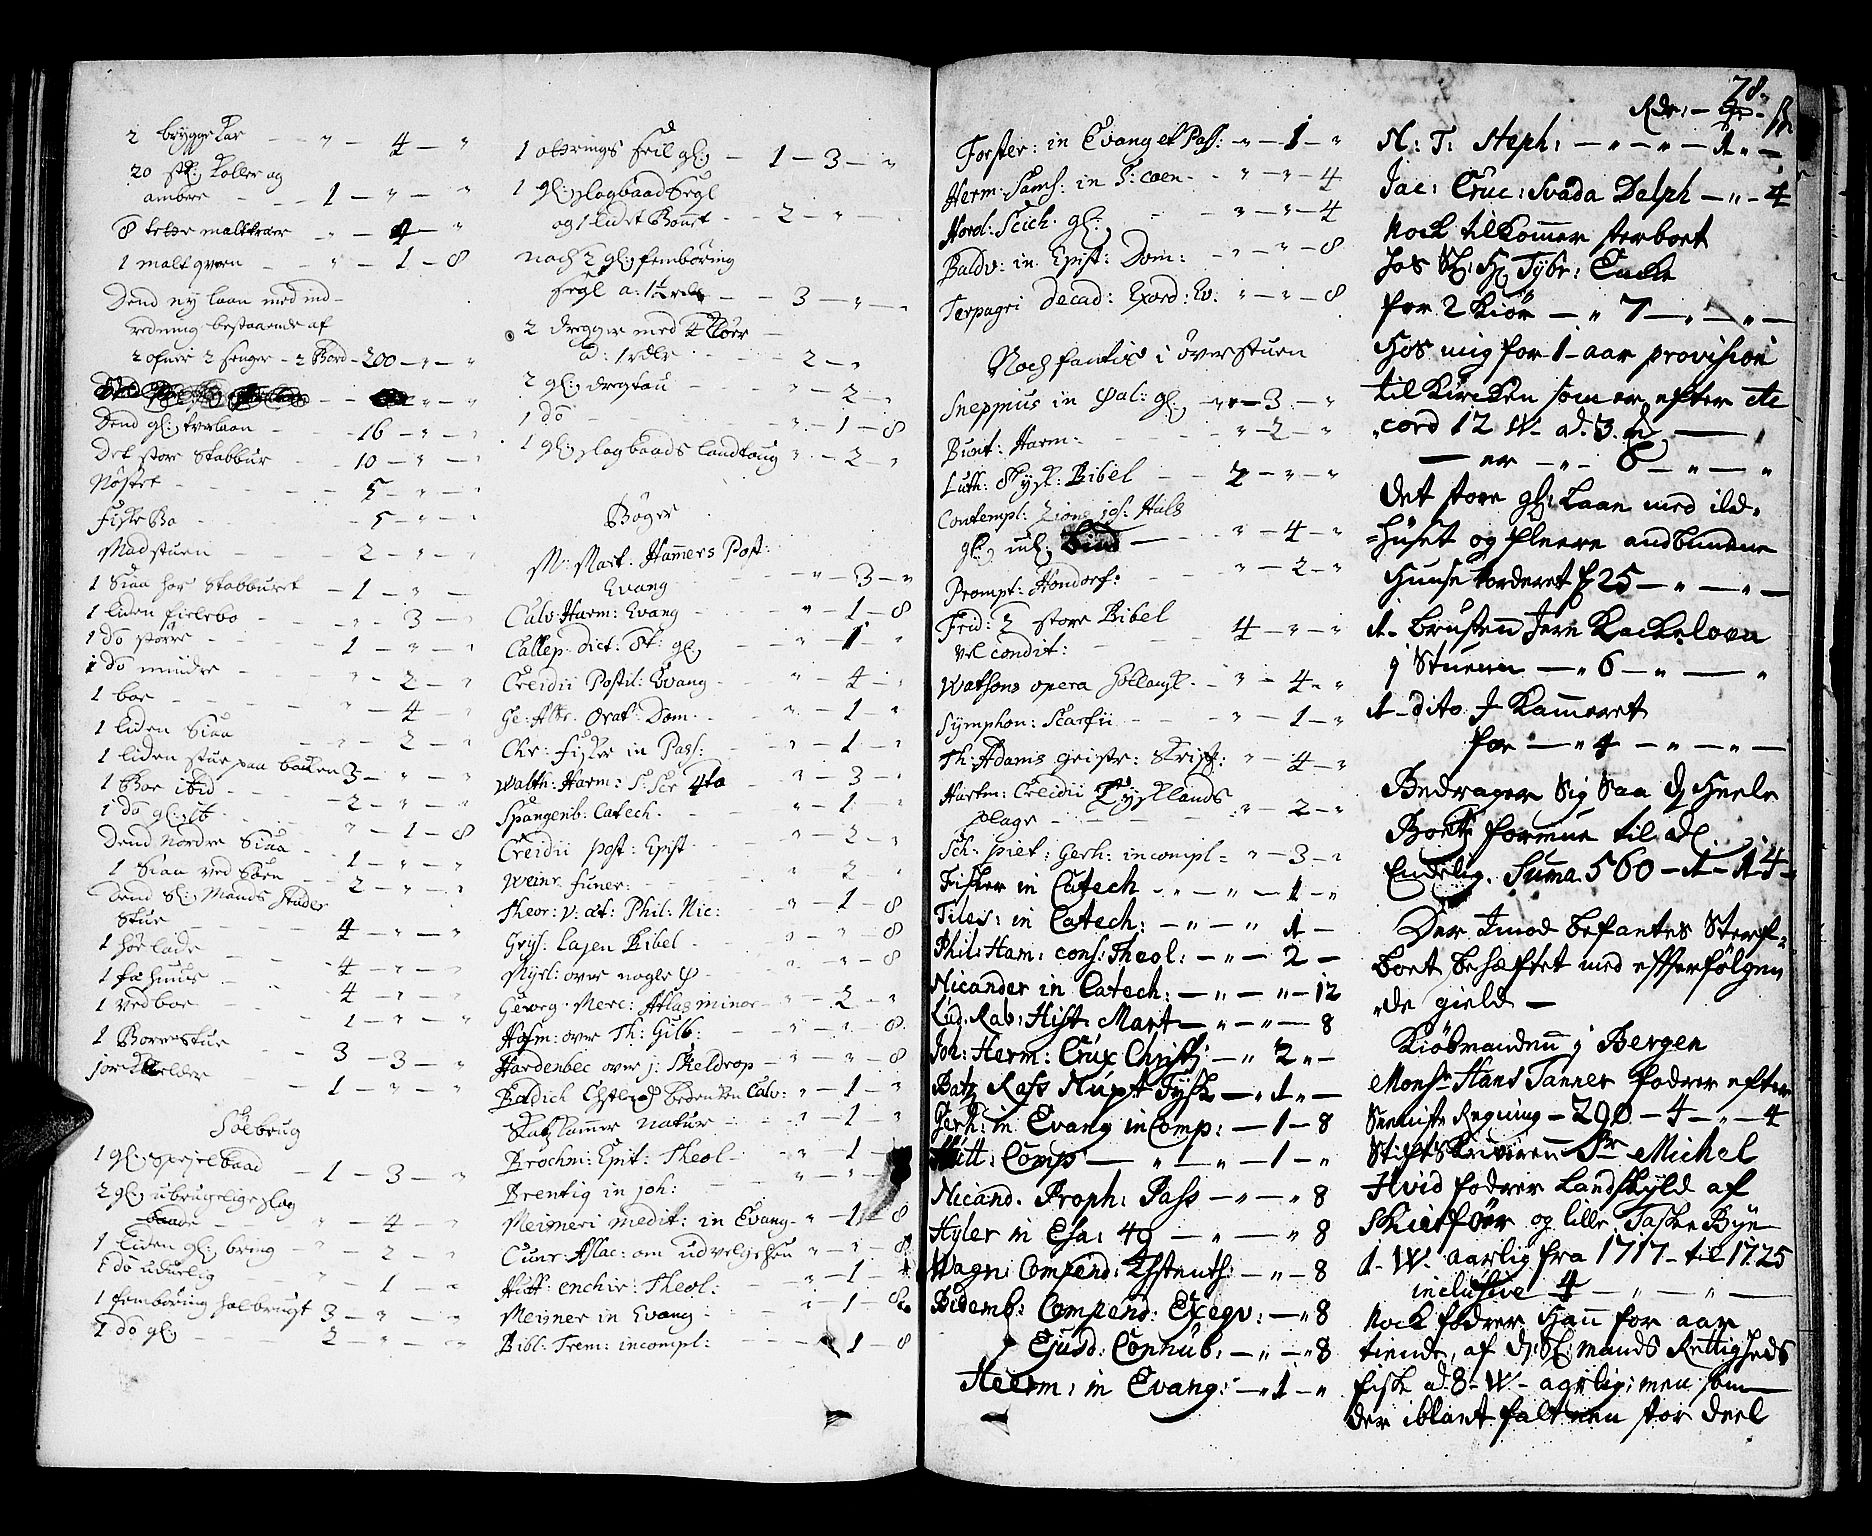 2 brygge Kar - - " - 4 - "
20 stk: Koller og
ambere - - 1 - " - "
8 tette malttræer - " - 4 - "
1 maltqvern - - " - 1 - 8
Dend ny laan med ind-
redning bestaaende af
2 ofner 2 senger - 2 Bord - 200 - " - "
Dend gl: tverlaan - - 16 - " - "
Det store Stabbur - - 10 - " - "
Nøstet - - - 5 - " - "
Fiske Bo - - - 5 - " - "
Madstuen - - - 2 - " - "
1 Siaa hos Stabburet - 1 - " -
1 liden fielebo - - " - 3 - "
1 do større - - 1 - " - "
1 do mindre - - " - 2 - "
1 boe - - - " - 4 - "
1 liden Siaa - - " - 2 - "
1 liden stue paa backen 3 - " - "
1 Boe ibid - - 2 - " - "
1 do gl: ib - - " - 1 - 8
Dend Nordre Siaa - - 1 - " - "
1 Siaa ved Søen - - 2 - " - "
Dend Sl: Mands Studer
Stue - - - 4 - " - "
1 høe lade - - 4 - " - "
1 fæhuus - - 4 - " - "
1 Vedboe - - 1 - " - "
1 Borrestue - - 3 - 3 - "
jordkelder - - 1 - " - "
Søebrug
1 gl: spejelbaad - 1 - 3 - "
2 gl: ubrugelige slag
baade - - " - 4 - "
1 liden gl: bring - " - 2 - "
1 do uduelig - " - 1 - "
1 femböring halbrugt 3 - " - "
1 do gl: - - 2 - " - "
1 ottrings Seil gl: - 1 - 3 - "
1 gl: slagbaad Segl
og 1 lidet Bonnet - - 2 - " -
noch 2 gl: femböring
Segl a: 1½ rdlr - - 3 - " -
2 dregger med 4 Kloer -
a: 1 rdlr - - - 2 - "
2 gl: dregtau - - " - 2 - "
1 do - - - " - 1 - 8
1 gl: slagbaads landtoug " - 2 - "
Bøger
M: Mart. Hammers Post:
Evang - - " - 3 - "
Calv: Harm: Evang - - " - 1 - 8
Callep. dict: St: gl: - " - 1 - "
Creidii Postil: Evang - - " - 4 - "
Ge: Albr. Orat: Dom. - - " - 1 - "
Chr: Fisker in Pass: - " - 1 - "
Walth: Harm: S: Scr 4to - " - 3 - "
Spangenb. Catech. - - " - 1 - "
Creidii post: Epist - - " - 2 - "
Weinr. funer: - - " 2 "
Theor: v. at: Phil: Nic: - " - 1 - 8
Gris. Lajen Bibel - - " - " - 8
Mysl: over nogle Ψ - - " - " - 8
Georg. Merc: Atlas minor - " - 2 - "
Hofm: over Th: Gilb: - - " - " - 8
Hardenbec over j: Skeldrop - " - " - 8
Baldich Chstlig bedenken Calv: - " - 1 - "
Skatzkamer Natur - - " - 1 - "
Brochm: Epit: Theol - - " - 1 -
Brentig in joh: - - " - " -
Meisneri medit: in Evang - " - 1 - 8
Cunr: Aslac: om udvelgelsen " - " - 8
Hutt: enchir: Theol: - " - 1 -
Meisner in Evang - - " - 1 - 8
Bibl: Trem: incompl: - - 1 - 8
Forster: in Evang et Pass: - " - 1 - "
Herm: Sams: in S: coen - - " - " - 4
Hord: Scich. gl: - - " - " - 4
Baldv: in Epist: Dom: - " - " - 8
Terpageri decad: Exord: Ev. " - " - 8
Noch fantis i överstuen
Sneppius in Psal: gl: - " - 3 - "
Bunt: Harm: - - - " - 2 - "
Luth: Tysk: Bibel - - 2 - " - "
Contempl: Zions jos: Hals
gl: - " - 4 - "
Prompt: Hondorf: - - " - 2 - "
Frid: 3 store Bibel
vel condit: - - 4 - " - "
Watsons opera Hollandt - " - 4 - "
Symphon: Scarfii - - " - 1 - "
Th. Adams geistr: Skrift: - " - 4 - "
Hartm: Creidii Tysklands
plage - - - " - 2 - "
Sch: piet: Gerh: incompl: " - 3 - "
Fisker in Catech - - " - 1 - "
Tiles: in Catech: - " - " 1 -
Phil: Ham: cons: Theol: - " - 2 -
Nicander in Catech: - " - " - 12
Lud. Rab: Hist: Mart - " - " - 8
Joh: Herm: Crux Christi: - " 2 " -
Batz Rass Nupt Tyske - " 1 " -
Gerh: in Evang incomp: - 1 - 8
Hutt: Comp - " 1 " - 1 - "
Nicand. Proph: Pass - " - " 8
Hyler in Esa: 49 - " - " 8
Wagn: Compend: Chstenth: - " - 8
Bidemb: Compend: Exegv: - " 8
Ejusd: Connub: - " - " 8
Heerm: in Evang: - " 1 - "
78.
Rdr: - - ß
N: T: Steph: - " - " - 1 " -
Jac: Cruc: Svada Delph - " - 4
Nock tilkommer sterboet
hos Sl: Hr Tybr:
for 2 Kiör - " 7 - " - " -
Hos mig for 1 - aar provision
til Kircken som er efter Ac
cord 12 W - ad. 3. -
- er - " - 6 - " - "
Det store gl: Laan med ild-
=huset og fleere andbundene
Huuse vorderet for 25 - " - " -
1 - brusten Jern Kackeloun
j Stuenn - " 6 - " - "
1 - dito J Kammeret
for - " 4 - " - " -
Bedrager Sig saa dj heele
Boets formue til ad
Endelig Suma 560 - 1 - 14 -
Der Imod befantes Sterf-
boet behæftet med effterfølgen
de gield -
Kiöbmandenn j Bergen
Monsr Hans Tanner fodrer efter
Seeniste Regning - 290 - 4 - " - 4
Stifftskriverenn Sr Michel
Hvid fodrer Landskyld af
Skietföer og lille Taske Bye
1 - W - aarlig fra 1717 - til 1725
inclusive 4 - " - " -
Nock fodrer Hann for aar
tiende, af dj: Sl: mands Rettigheds
fisk ad 8 - W - aarlig; men som
der iblant falt een stor deel